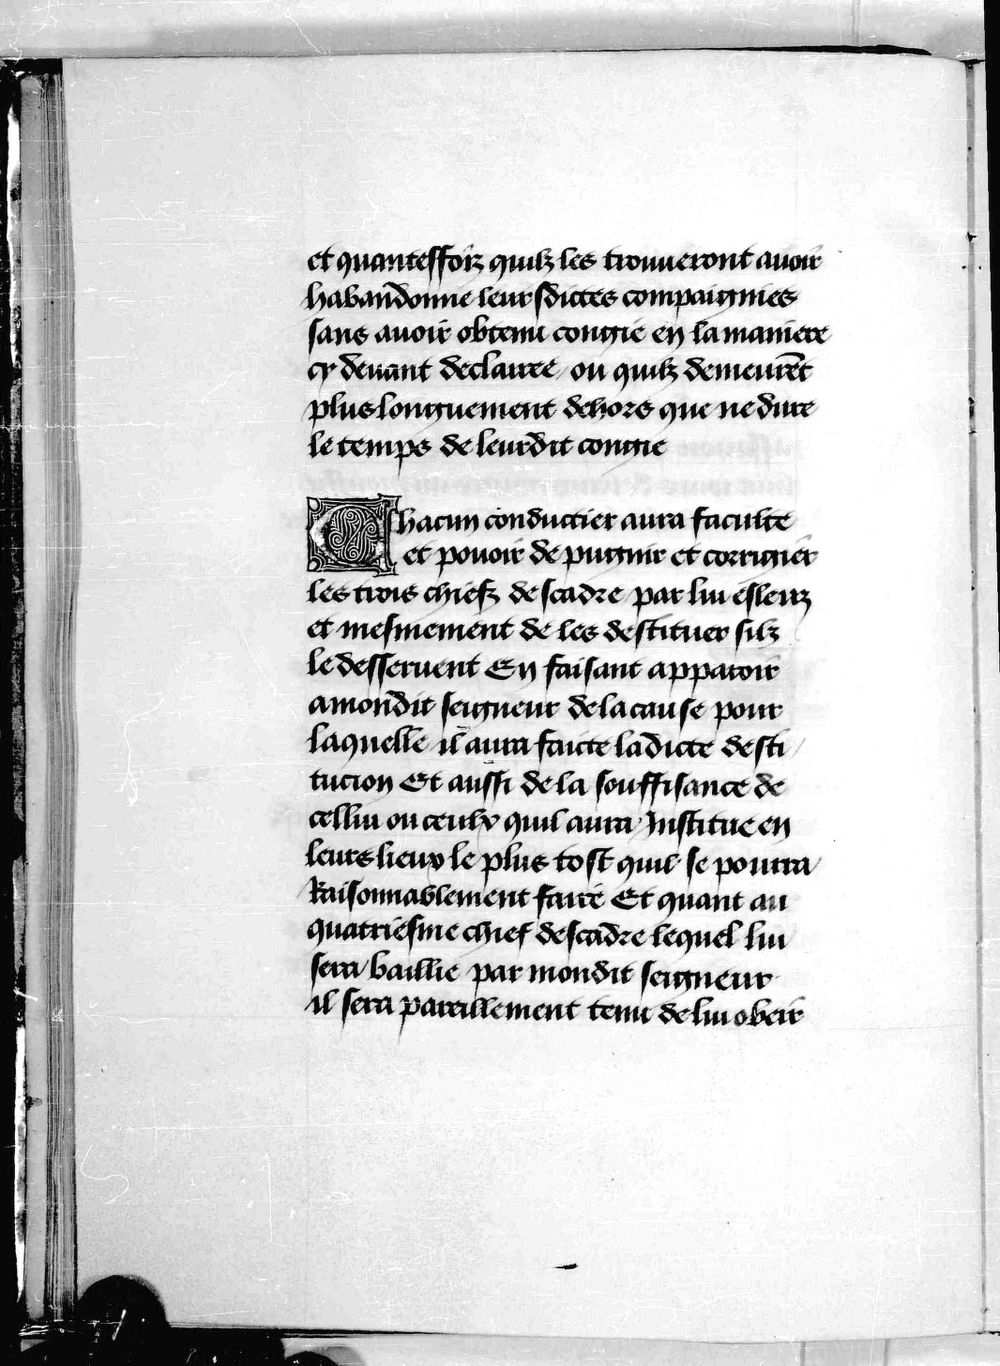 et quanteffoiz quilz les trouueront auoir
habandonne leursdictes compaignies
sans auoir obtenu congie en la maniere
cy deuant declairee / ou quilz demeurẽt
plus longuement dehors que ne dure
le temps de leurdit congie
Chacun conductier aura faculte
et pouoir de pugnir et corrigier
les trois chiefz descadre / par lui esleuz
et mesmement de les destituer silz
le desseruent En faisant apparoir
a mondit seigneur de la cause pour
laquelle il aura faicte ladicte desti /
tucion Et aussi de la souffisance de
cellui ou ceulx quil aura Institue en
leurs lieux le plus tost quil se pourra
Raisonnablement faire Et quant au
quatriesme chief descadre lequel lui
sera baillie par mondit seigneur
il sera pareillement tenu de lui obeir